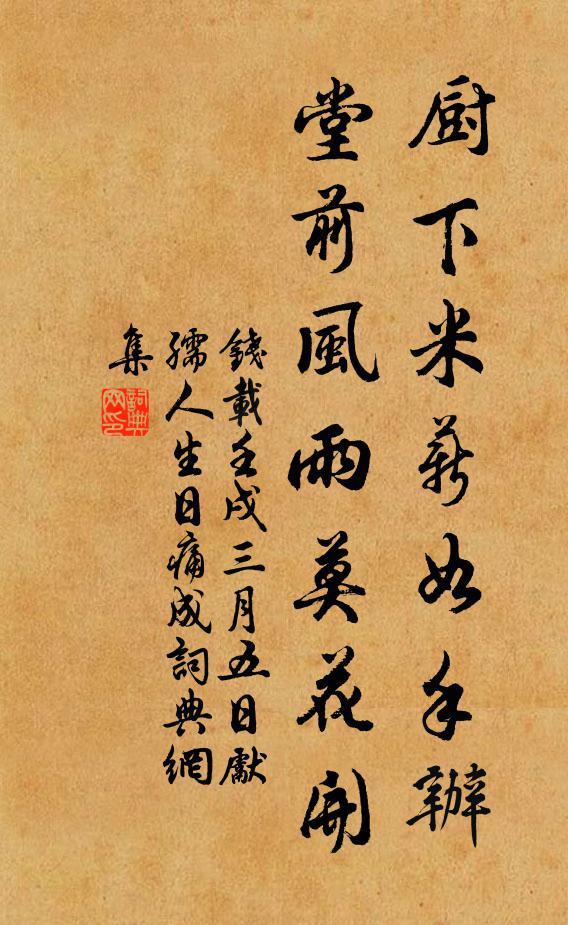 厨下米薪如手辦
堂前風雨莫花開
錢載壬戌三月五日獻
孺人生日痛成詞典網
集
詞典
网印